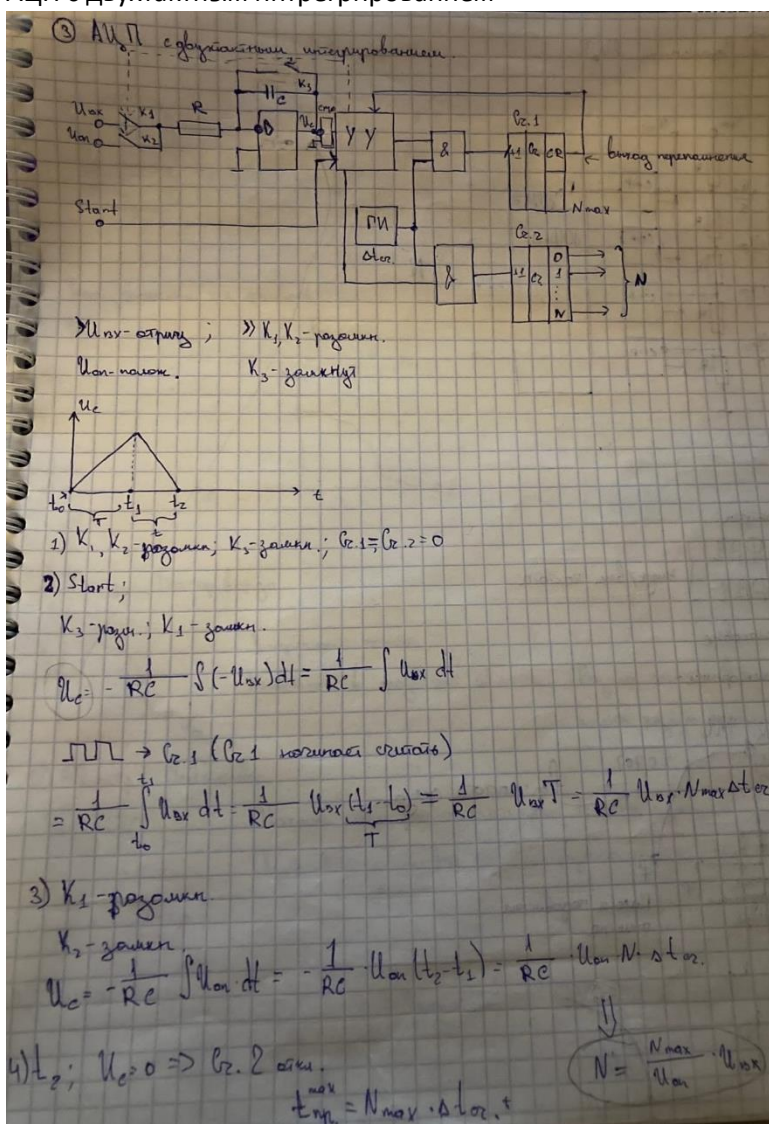 АЦП с двухтактным интегрированием
③ АЦП с двухтактным интегрированием.
K3
C
Uвх K1 R Uc УУ & Сч.1
Uоп K2 +1 Сч CR ← выход переполнения
Nmax
Start
ГИ
Δtсч.
Сч.2
& +1 Сч 0 1 ... N } N
Uвх - отриц ; » K1, K2 - разомкн.
Uоп - полож. K3 - замкнут
Uc
t0 t1 t2 t
T t
1) K1, K2 - разомкн; K3 - замкн.; Сч.1 = Сч.2 = 0
2) Start;
K3 - разм.; K1 - замкн.
Uc = - 1/RC ∫(-Uвх)dt = 1/RC ∫ Uвх dt
→ Сч.1 (Сч 1 начинает считать)
= 1/RC ∫t0 t1 Uвх dt = 1/RC Uвх (t1 - t0) = 1/RC Uвх T = 1/RC Uвх · Nmax Δt сч
T
3) K1 - разомкн.
K2 - замкн.
Uc = - 1/RC ∫ Uоп · dt = - 1/RC · Uоп (t2 - t1) = 1/RC · Uоп · N · Δt сч.
⇓
4) t2; Uc = 0 => Сч. 2 откл. N = Nmax/Uоп · Uвх
t пр. max = Nmax · Δt сч.